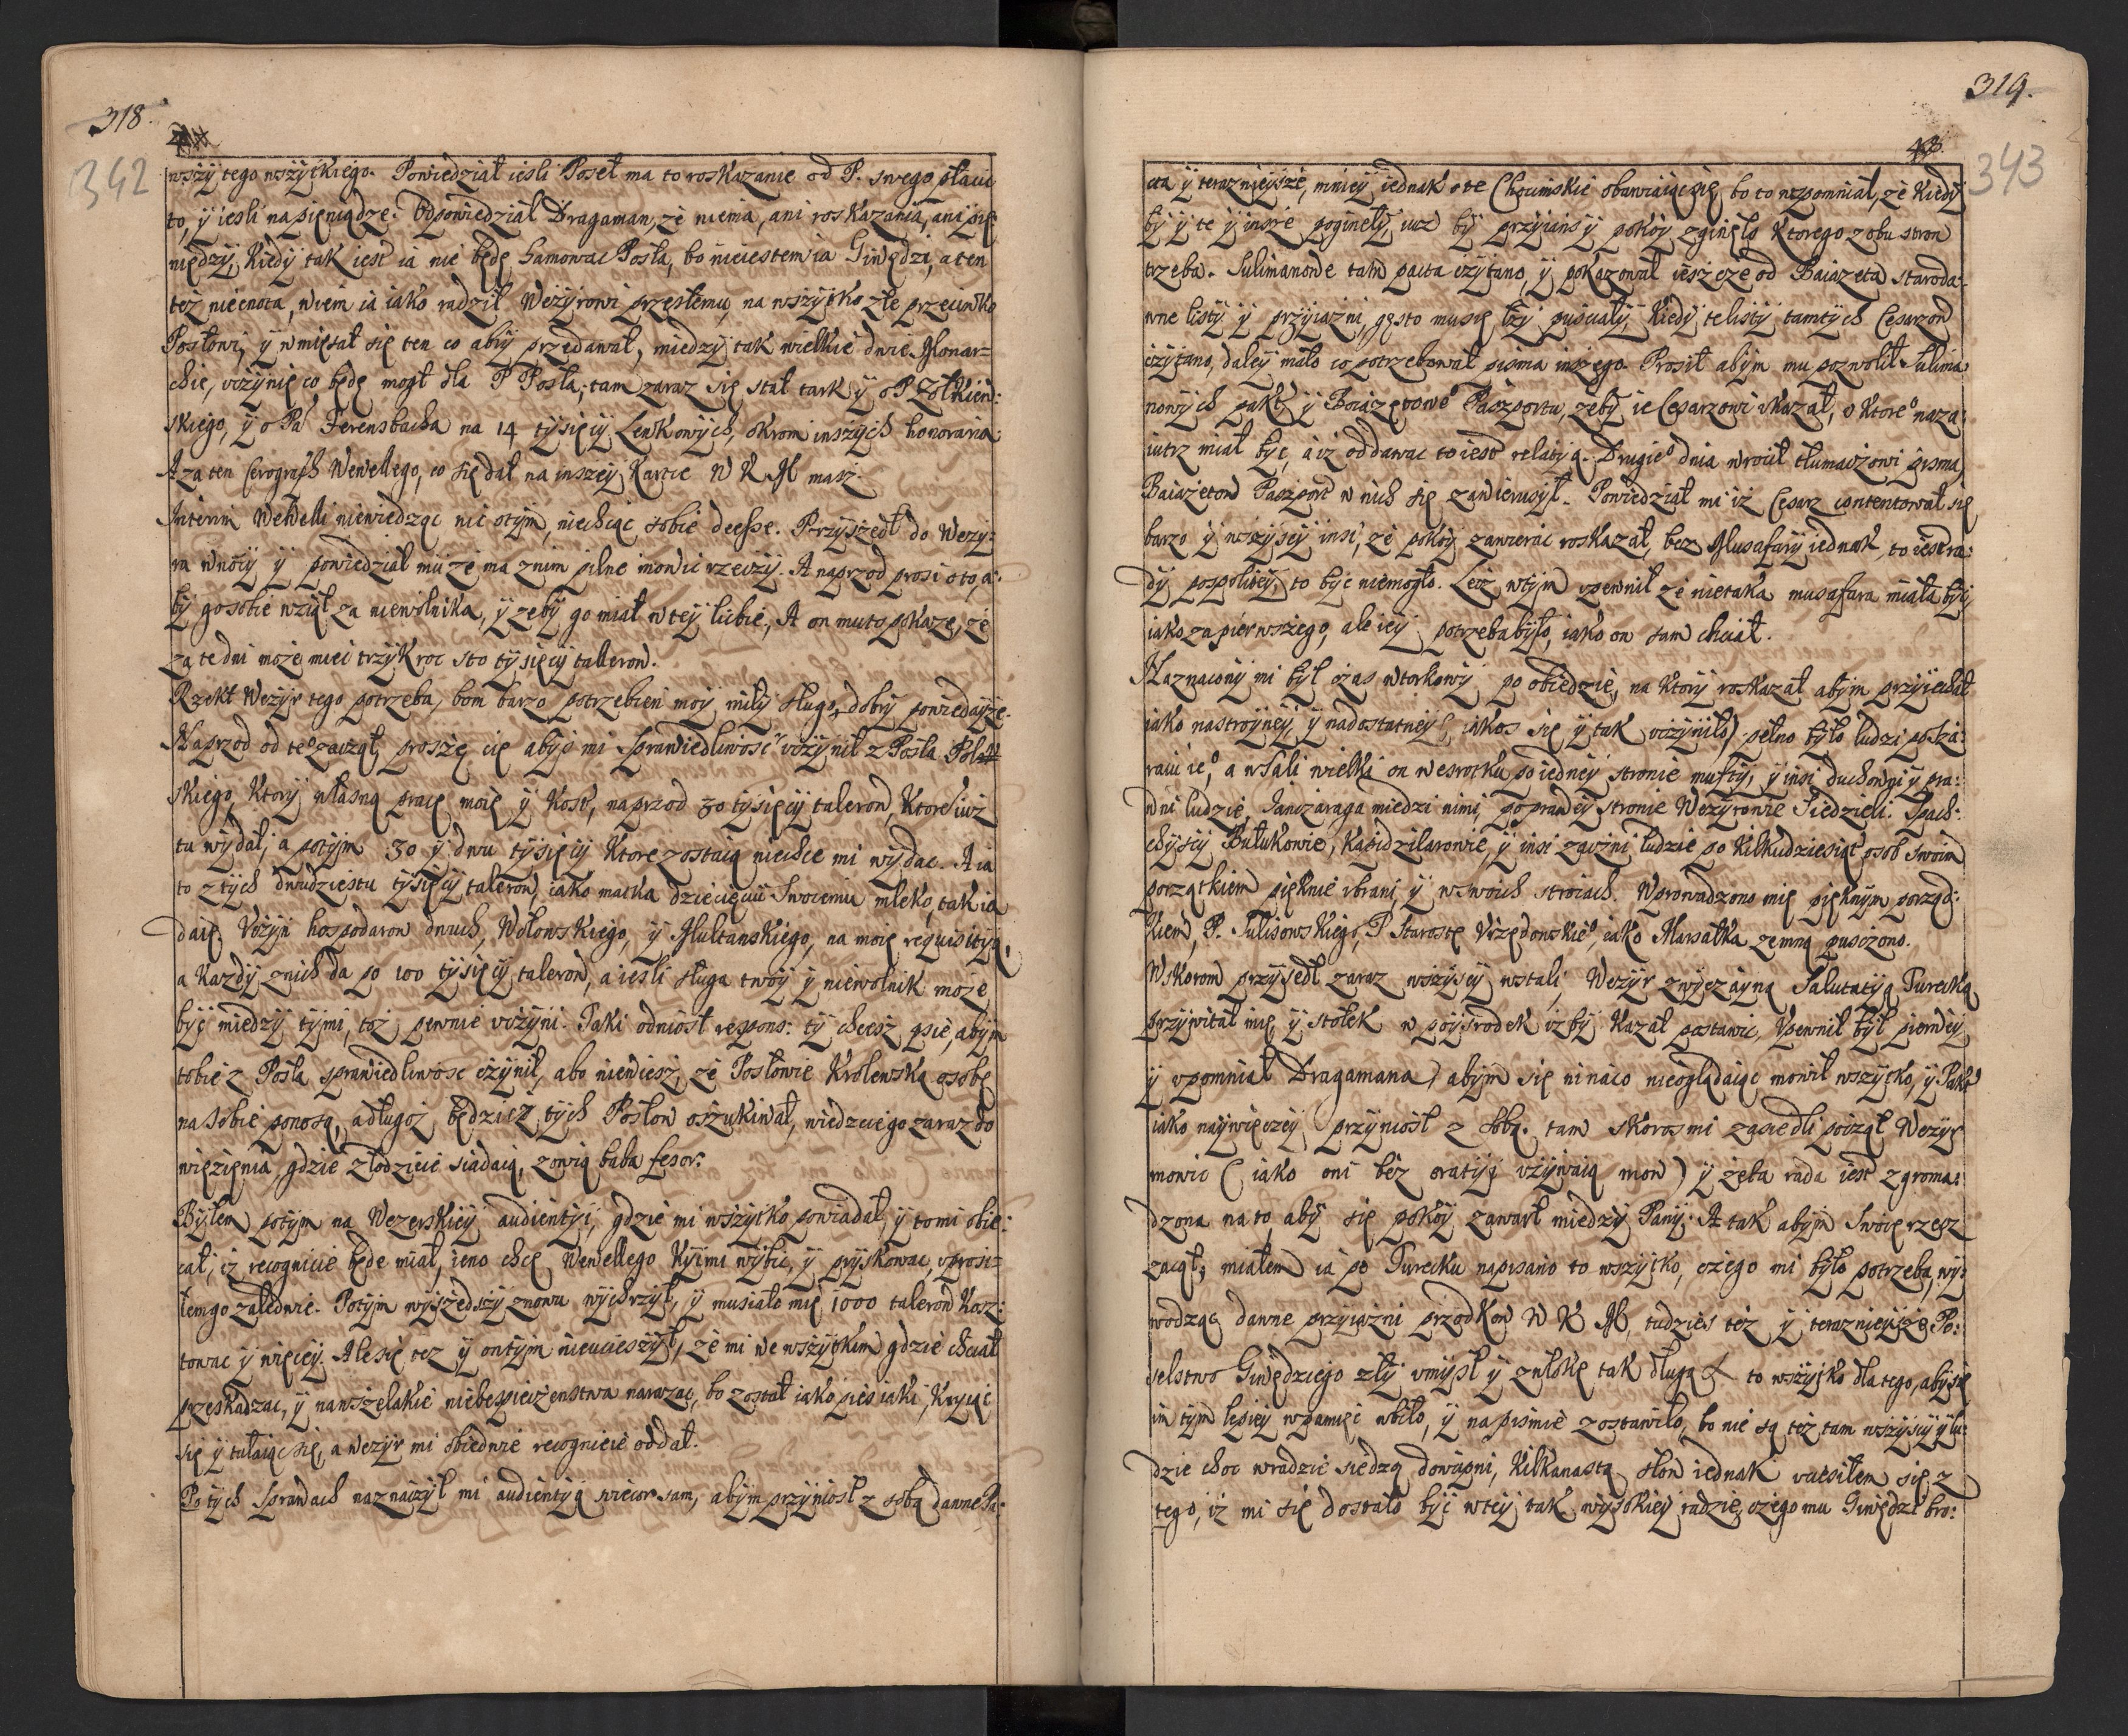 318.
342
wszÿ tego wszÿtkiego. Powiedział iesli Poseł ma to roskazanie od P. swego płacic
to, ÿ iesli napięniądze. Odpowiedział Dragaman, ze niema, ani roskazania, ani pię
niędzÿ, Kiedÿ tak iest ia nie będę hamowac Posła, bo nieiestem ia Giwędzi, a ten
tez niecnota, wiem ia iako radził Wezÿrowi przeszłemu, na wszÿtko złe przeciwko
Posłowi, ÿ wmięsał się ten co abÿ przedawał, miedzÿ tak wielkie dwie Monar=
chie, vczÿnię co będę mogł dla P Posła, tam zaraz się stał tark ÿ o P Zołkien:
skiego, ÿ o Pa Ferensbacha na 14 tÿsięcÿ Lewkowÿch, okrom inszÿch honoraria
A za ten Cerograph Wewellego, co się dał na inszeÿ Karcie W K M masz.
Interim Wewelli niewiedząc nic otÿm, niechcąc sobie deesse. Przÿszedł do Wezÿ:
ra wnocÿ ÿ powiedział mu ze ma znim pilne mowic rzeczÿ. A naprzod prosi oto, a:
bÿ go sobie wziął za niewolnika, ÿ zebÿ go miał wteÿ liczbie, A on mu to pokaze, ze
za te dni moze miec trzÿkroc sto tÿsięcÿ talleron.
Rzekł Wezÿr tego potrzeba, bom barzo potrzebien moÿ miłÿ sługo, dobrÿ powiedaÿze.
Naprzod od teo zacząl, proszę cię abÿs mi sprawiedliwosc vczÿnił z Posła Pols
skiego, Ktorÿ własną pracę moię ÿ Koszt, naprzod 30 tÿsięcÿ taleron, Ktore iuz
tu wÿdał, a potÿm 30 ÿ dwu tÿsięcÿ Ktore zostaią niechce mi wÿdac. A ia
to z tÿch dwudziestu tÿsięcÿ taleron, iako matka dziecięciu Swoiemu mleko, tak ia
daię. Vczÿn hospodaron dwuch, Wołowskiego, ÿ Multanskiego, na moię requisitÿą,
a Kazdÿ znich da po 100 tÿsięcÿ taleron, a iesli sługa twoÿ ÿ niewolnik moze
bÿc miedzÿ tÿmi, toz pewnie vczÿni. Taki odniosł respons: tÿ chcesz psie, abÿm
tobie z Posła sprawiedliwosc czÿnił, abo niewiesz, ze Posłowie Krolewską osobę
na Sobie ponoszą, adługoz będziesz tÿch Posłow oszukiwał, wiedzciego zaraz do
więzięnia gdzie złodzieie siadaią, zowią baba Cesor.
Bÿłem potÿm na Wezerskieÿ audientÿi, gdzie mi wszÿtko powiadał, ÿ to mi obie:
cał, iz recognicie będe miał, ieno chcę Wewellego Kÿimi wÿbic, ÿ prÿskowac, vprosi=
łemgo zaledwie. Potÿm wÿszedszÿ znowu wÿchrzÿł, ÿ musiało mię 1000 taleron Kosz:
towac ÿ więceÿ. Alesię tez ÿ ontÿm nieucieszÿł, ze mi we wszÿtkim gdzie chciał
przeskadzac, ÿ nawszelakie niebespieczenstwa narazac, bo został iako pies iaki, Krÿiąc
się ÿ tułaiąc się, a wezÿr mi obiednie recognicie oddał.
Po tÿch Sprawach naznaczÿł mi audientÿą swiecior sam, abÿm przÿniosł z sobą dawne Pa:
319.
343
43.
cta ÿ teraznieÿsze, mnieÿ iednak o te Chocimskie obawiaiąc się, bo to wspomniał, ze Kiedÿ
bÿ ÿ te ÿ insze poginełÿ, iuz bÿ przÿiansÿ pokoÿ zginęło Ktorego z obu stron
trzeba. Sulimanowe tam pacta czÿtano, ÿ pokazował ieszcze od Baiazeta staroda:
wne listÿ ÿ przÿiazni, gęsto musię łzÿ pusciałÿ, Kiedÿ te listÿ tamtÿch Cesarzow
czÿtano, daleÿ mało co potrzebował pisma inszego. Prosił abÿm mu pozwolił Sulima
nowÿch pakt ÿ Baiazetoweo Paszportu, zebÿ ie Cesarzowi vkazał, o Ktoreo naza:
iutrz miał bÿc, a iz oddawac to iest relatÿą. Drugieo dnia wrocił tłumaczowi pisma,
Baiazetow Paszport w nich się zawierusÿł. Powiedział mi iz Cesarz contentował się
barzo ÿ wszÿscÿ insi, ze pokoÿ zawierac roskazał, bez Musafarÿ iednak, to iest ra:
dÿ pospoliteÿ, to bÿc niemogło. Lecz wtÿm vpewnił ze nietaka musafara miała bÿc
iako za pierwszego, ale ieÿ potrzeba bÿło, iako on sam chciał.
Naznaconÿ mi bÿł czas wtorkowÿ po obiedzie, na Ktorÿ roskazał abÿm przÿiechał
iako nastroÿneÿ, ÿ nadostatneÿ, iakos się ÿ tak vczÿniło) pełno bÿło ludzi po sza:
raiu ieo, a wsali wielki on wesrotku po iedneÿ stronie muftÿ, ÿ insi duchowni ÿ pra:
wni ludzie, Janczaraga miedzi nimi, po praweÿ stronie Wezÿrowie Siedzieli. Spach:
chÿscÿ Bułukowie, Kapidzilarowie, ÿ insi zacni ludzie po Kilkudziesiąt osob swoim
porządkiem pięknie vbrani ÿ w swoich stroiach. Wprowadzono mię pięknÿm porząd:
kiem, P. Sulisowskiego, P Starostę Vrzędowskieo, iako Marsałka zemną pusczono.
Wskorom przÿsedł zaraz wszÿscÿ wstali, Wezÿr zwÿczaÿną Salutatÿą Turecką
przÿwitał mię, ÿ stołek w poÿsrodek izbÿ Kazał postawic, Vpewnił bÿł pierweÿ
ÿ vpomniał Dragamana) abÿm się ninaco nieoglądaiąc mowił wszÿtko, ÿ Pakt
iako naÿwięceÿ przÿniosł z sobą. tam skorosmi zasiedli począł Wezÿr
mowic (iako oni bez oratÿÿ vzÿwaią mow) ÿ zeta rada iest zgroma:
dzona na to, abÿ się pokoÿ zawarł miedzÿ Panÿ. A tak abÿm Swoię rzecz
zaczął, miałem ia po Turecku napisano to wszÿtko, czego mi bÿło potrzeba, wÿ:
wodząc dawne przÿiazni przodkow W K M, tudzies tez ÿ teraznieÿsze Po:
selstwo Giwędziego złÿ vmÿsł ÿ zwłokę tak długą to wszÿtko dla tego, abÿ się
im tÿm lepieÿ wpamięc wbiło, ÿ na pismie zostawiło, bo nie są tez tam wszÿscÿ lu:
dzie choc wradzie siedzą dowcipni, Kilkanastą słow iednak vciesiłem się z
tego, iz mi się dostało bÿc wteÿ tak wÿsokieÿ radzie, czego mu Giwędzi bro: